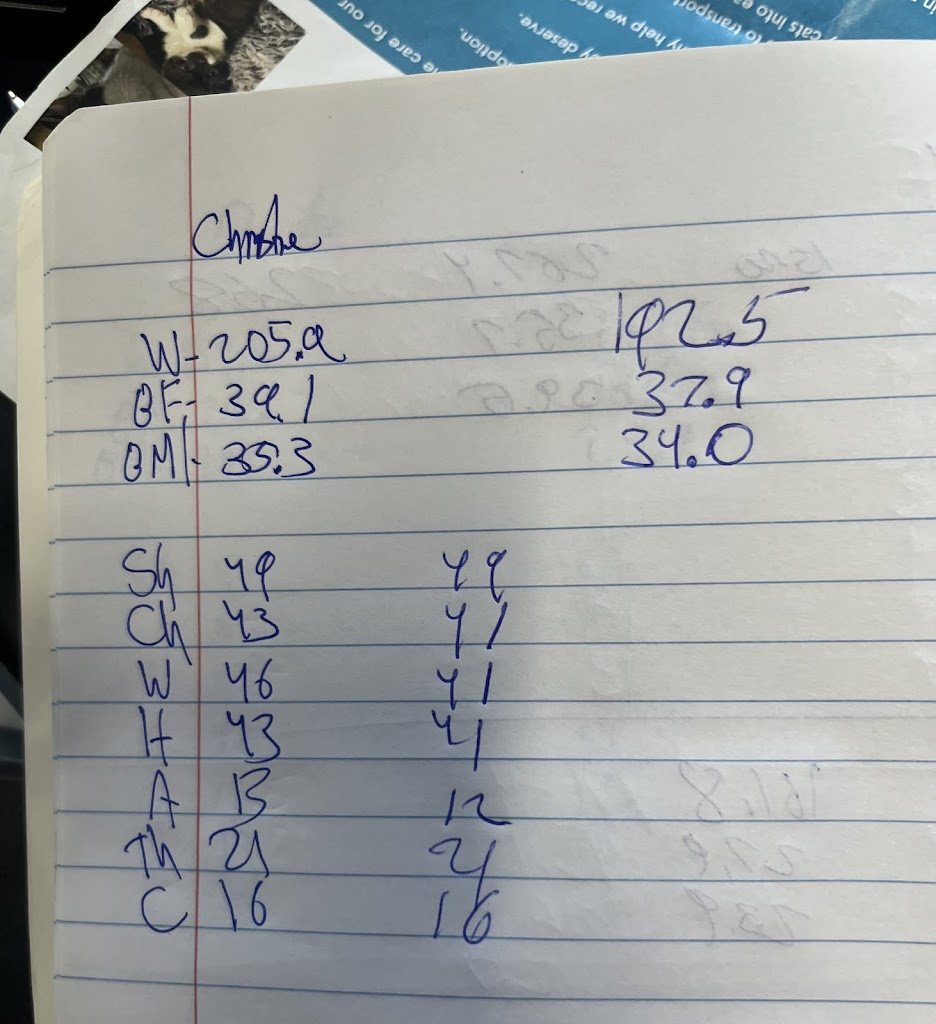 cats into
to transport
my help we rec
y deserve.
option.
e care for our
Christine
W- 205.9 192.5
BF- 39.1 37.9
BMI- 35.3 34.0
Sh 49 49
Ch 43 41
W 46 41
H 43 41
A 13 12
Th 21 21
C 16 16